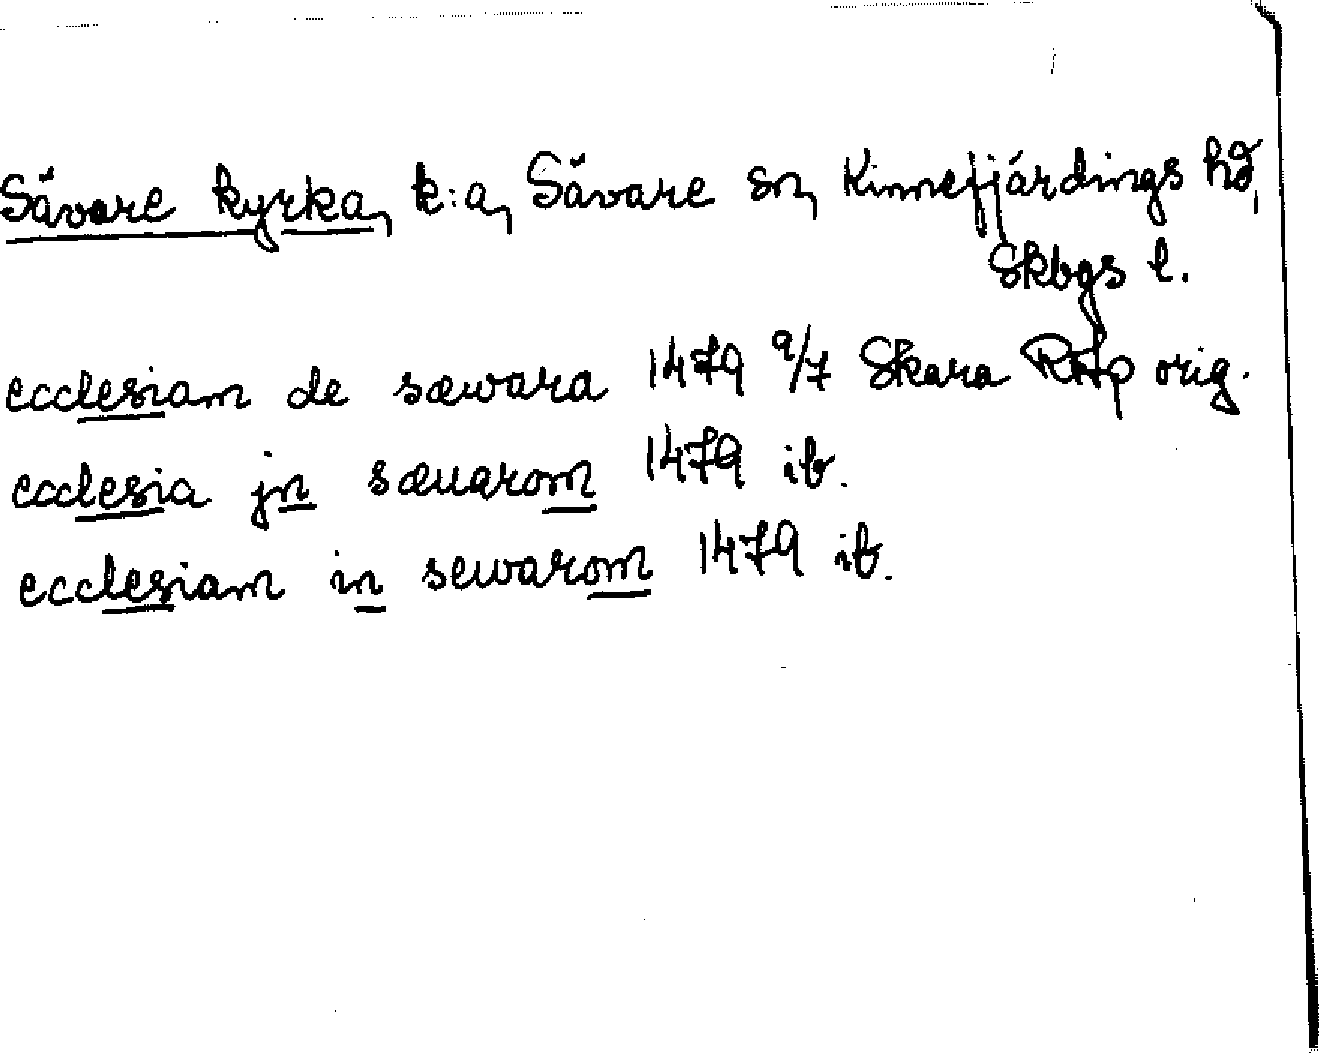 Sävare kyrka, k:a, Sävare sn, Kinnefjärdings hd,
Skbgs l.
ecclesiam de sæwara 1479 9/7 Skara RAp orig.
ecclesia jn sæuarom 1479 ib.
ecclesiam in sewarom 1479 ib.